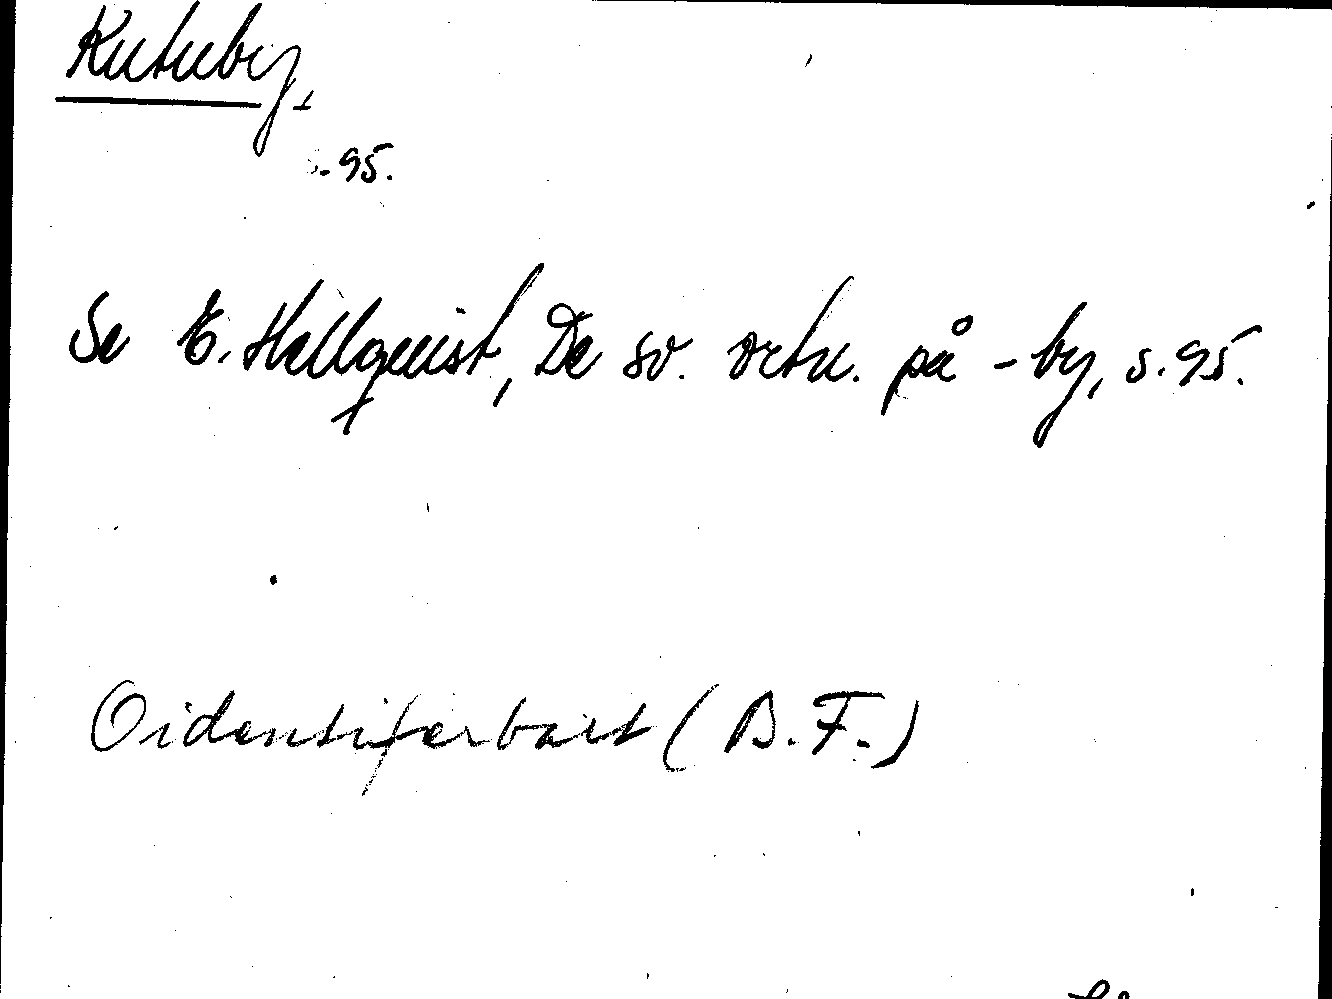 Kutuby,
s. 95.
Se E. Hellquist, De sv. ortn. på -by, s. 95.
Oidentiferbart (B.F.)